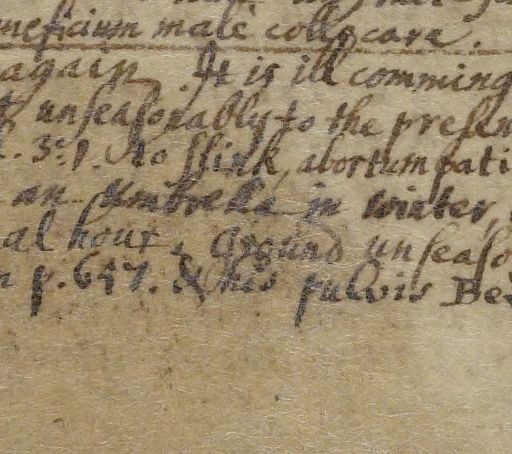 neficium male collocare.
again. It is ill comming
unseasonably to the presen
3.1. to slink, abortum pati
an umbrella in winter,
al hour. Ground unseaso
p. 647. & his pulvis Be